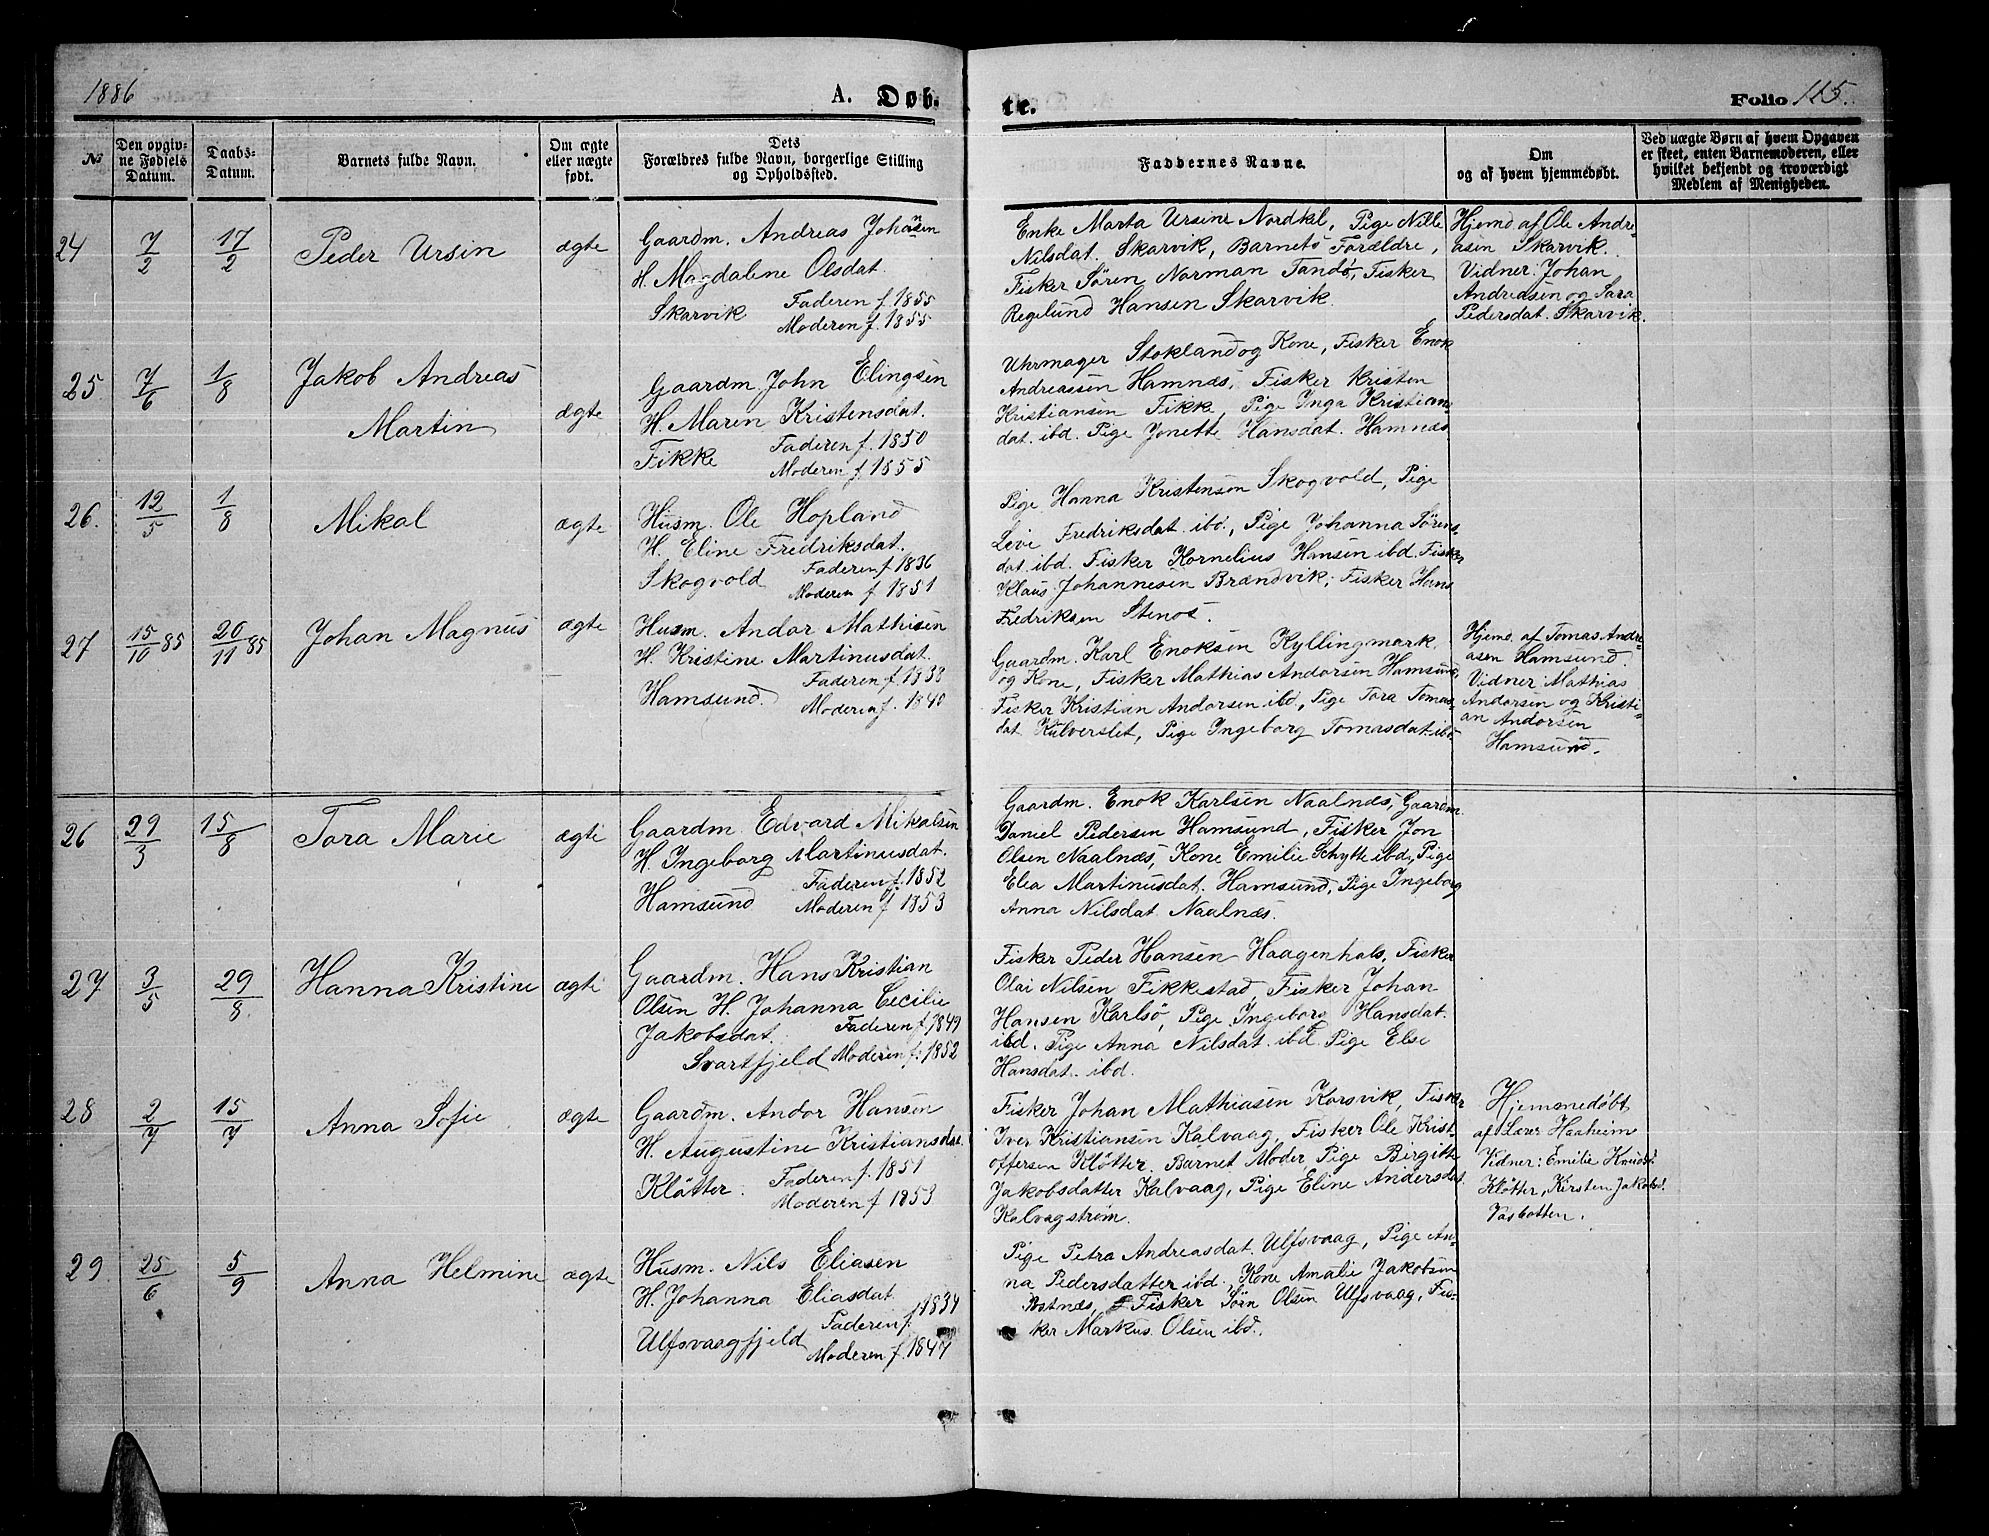 1886
A. Døb-
te.
Folio 115.
№
Den opgiv-
ne Fødsels
Datum.
Daabs-
Datum.
Barnets fulde Navn.
Om ægte
eller uægte
født.
Dets
Forældres fulde Navn, borgerlige Stilling
og Opholdssted.
Faddernes Navne.
Om
og af hvem hjemmedøbt.
Ved uægte Børn af hvem Opgaven
er skeet, enten Barnemoderen, eller
hvilket bekjendt og troværdigt
Medlem af Menigheden.
24
7/2
17/2
Peder Ursin
ægte
Gaardm. Andreas Johansen
H. Magdalene Olsdat.
Skarvik
Faderen f. 1855
Moderen f. 1855
Enke Marta Ursine Nordkil, Pige Nille
Nilsdat. Skarvik, Barnets Forældre,
Fisker Sören Norman Tandö, Fisker
Regelund Hansen Skarvik.
Hjemd. af Ole Andre-
asen Skarvik.
Vidner: Johan
Andreasen og Sara
Pedersdat. Skarvik.
25
7/6
1/8
Jakob Andreas
Martin
ægte
Gaardm. John Elingsen
H. Maren Kristensdat.
Fikke
Faderen f. 1850
Moderen f. 1855
Uhrmager Stokland og Kone, Fisker Enok
Andreassen Hamnæs, Fisker Kristen
Kristiansen Fikke, Pige Inga Kristians-
dat. ibd. Pige Jonette Hansdat. Hamnæs
26.
12/5
1/8
Mikal
ægte
Husm. Ole Hopland
H. Eline Fredriksdat.
Skogvold
Faderen f 1836
Moderen f. 1851
Pige Hanna Kristensen Skogvold, Pige
Levi Fredriksdat. ibd., Pige Johanna Sörens-
dat. ibd. Fisker Kornelius Hansen ibd. Fisker
Klaus Johannesen Brændvik, Fisker Hans
Fredriksen Stenos.
27
15/10 85
20/11 85
Johan Magnus
ægte
Husm. Andor Mathisen
H. Kristine Martinusdat.
Hamsund.
Faderen f. 1838
Moderen f. 1840
Gaardm. Karl Enoksen Kyllingmark
og Kone, Fisker Mathias Andorsen Hamsund,
Fisker Kristian Andorsen ibd., Pige Tora Tomas-
dat. Kulverslet, Pige Ingeborg Tomasdat. ibd
Hjemd. af Tomas Andre-
asen Hamsund.
Vidner: Mathias
Andorsen og Kristi-
an Andorsen
Hamsund.
26
29/3
15/8
Tora Marie
ægte
Gaardm. Edvard Mikalsen
H. Ingeborg Martinusdat.
Hamsund
Faderen f. 1852
Moderen f 1853
Gaardm. Enok Karlsen Naalnæs, Gaardm.
Daniel Pedersen Hamsund, Fisker Jon
Olsen Naalnæs, Kone Emilie Schytte ibd., Pige
Elea Martinusdat. Hamsund, Pige Ingeborg
Anna Nilsdat Naalnæs.
27
3/5
29/8
Hanna Kristine
ægte
Gaardm. Hans Kristian
Olsen H. Johanna Cecilie
Jakobsdat.
Faderen f. 1849
Svartfjeld Moderen f: 1852
Fisker Peder Hansen Haagenhals, Fisker
Olai Nilsen Fikkestad, Fisker Johan
Hansen Karlsö, Pige Ingeborg Hansdat.
ibd. Pige Anna Nilsdat. ibd. Pige Else
Hansdat. ibd.
28
2/7
15/7
Anna Sofie
ægte
Gaardm. Andor Hansen
H. Augustine Kristiansdat.
Klötter.
Faderen f. 1851
Moderen f 1853
Fisker Johan Mathiasen Korsvik, Fisker
Iver Kristiansen Kalvaag, Fisker Ole Krist-
offersen Klötter. Barnet Moder Pige Birgitte
Jakobsdatter Kalvaag, Pige Eline Andersdat.
Kalvagström.
Hjemmedøbt
af Lærer Haaheim
Vidner: Emilie Knudsd.
Klötter, Kirsten Jakobsd.
Vasbotten.
29
25/6
5/9
Anna Helmine
ægte
Husm. Nils Eliasen
H. Johanna Eliasdat.
Ulfsvaagfjeld
Faderen f. 1834
Moderen f. 1847
Pige Petra Andreasdat. Ulfsvaag, Pige An-
na Pedersdatter ibd. Kone Amalie Jakobsen
Fisker Sörn Olsen Ulfsvaag, Fis-
ker Markus Olsen ibd.